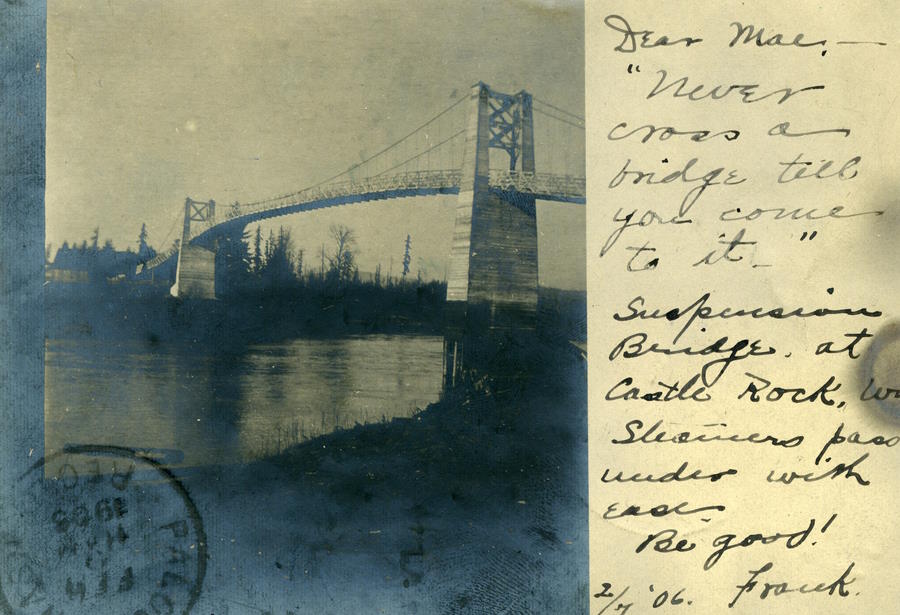 Dear Mae,—
"Never
cross a
bridge till
you come
to it."
Suspension
Bridge, at
Castle Rock,
Steamers pass
under with
ease
Be good!
2/7 '06. Frank.
REC
1906
FEB